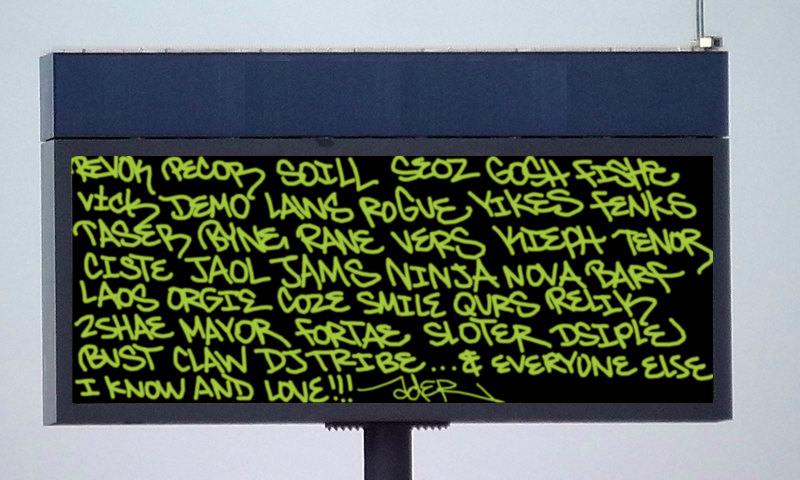 REVOK PECOR SOILL SEOZ GOSH FISHE
VICK DEMO LAWS ROGUE YIKES FENKS
TASER BYNE RANE VERS KIEPH TENOR
CISTE JAOL JAMS NINJA NOVA BARF
LAOS ORGIE COZE SMILE QVRS RELIK
2SHAE MAYOR FORTAE SLOTER DSIPLE
BUST CLAW DJ TRIBE...& EVERYONE ELSE
I KNOW AND LOVE!!!